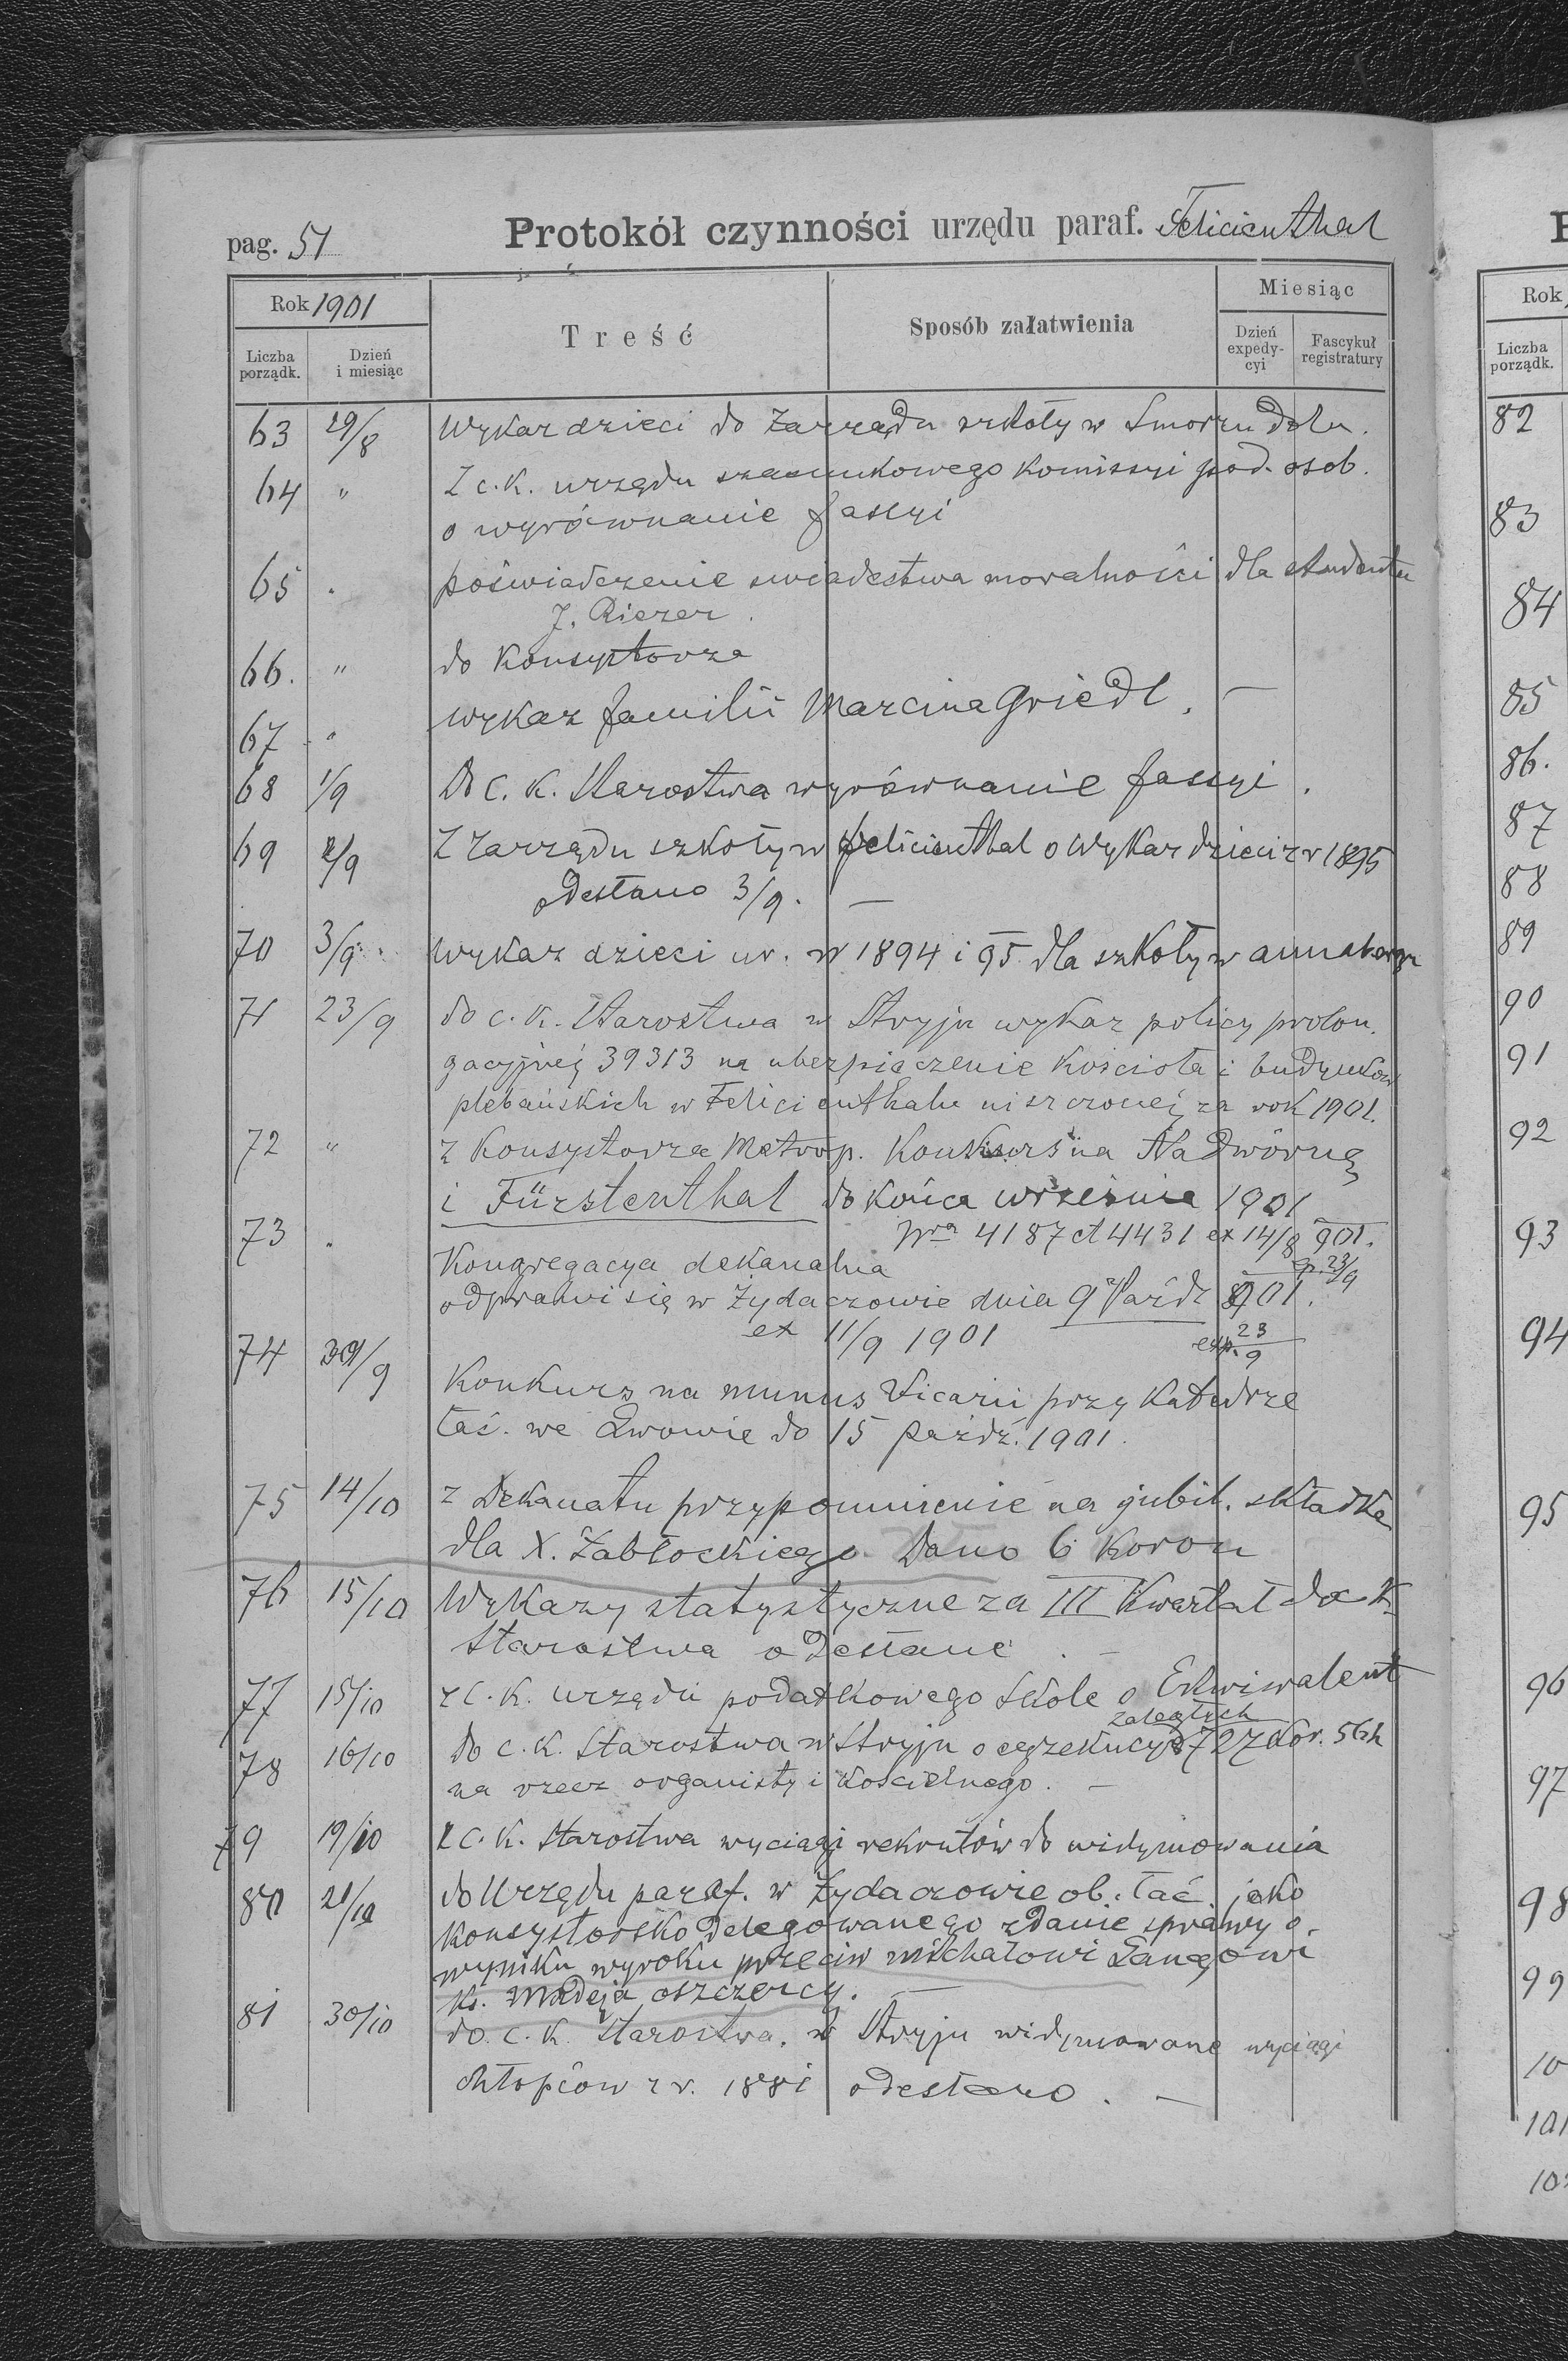 pag. 51 Protokół czynności urzędu paraf. Felicienthal
Rok 1901
Treść
Sposób załatwienia
Miesiąc
Liczba porządk.
Dzień i miesiąc
Dzień expedycyi
Fascykuł registratury
63 29/8 Wykaz dzieci do Zarządu szkoły w Smorzu Doln.
64 " Z c. k. urzędu szacunkowego komissyi pod. osob.
o wyrównanie fassyi
65 " poświadczenie świadectwa moralności dla studenta
J. Riezer.
66. " do Konsystorza
67 " wykaz familii Marcina Griedl. —
68 1/9 Do c. k. Starostwa wyrównanie fassyi.
69 2/9 Z zarządu szkoły w Felicienthal o wykaz dzieci z r 1895
odesłano 3/9. —
70 3/9. wykaz dzieci ur. w 1894 i 95 dla szkoły w annabergu
71 23/9 do c. k. Starostwa w Stryju wykaz policy prolon.
gacyjnej 39313 na ubezpieczenie kościoła i budynków
plebańskich w Felicienthalu uiszczonej za rok 1901.
72 " z Konsystorza Metrop. Konkurs na Nadwórnę
i Fürstenthal do końca września 1901
Nra 4187 et 4431 ex 14/8 901.
ep. 23/9
73 " Kongregacya dekanalna
odprawi się w Żydaczowie dnia 9 Paźdz 901.
ex 11/9 1901 exp. 23/9
74 30/9
Konkurs na munus Vicarii przy Katedrze
łać. we Lwowie do 15 paźdź. 1901.
75 14/10 z Dekanatu przypomnienie na jubil. składkę
dla X. Zabłockiego. Dano 6 koron
76 15/10 Wykazy statystyczne za III kwartał do c K.
Starostwa odesłane. —
77 15/10 z c. k. urzędu podatkowego Skole o Ekwiwalent
zaległych
78 16/10 do c. k. Starostwa w Stryju o egzekucyę 727 Kor. 56h
na rzecz organisty i kościelnego. —
79 19/10 z c. k. Starostwa wyciągi rekrutów do widymowania
80 21/10 do Urzędu paraf. w Żydaczowie ob. łać. jako
konsystorsko delegowanego zdanie sprawy o
wyniku wyroku przeciw Michałowi Langowi
ks. Madeja oszczercy. —
81 30/10 do. c. k. Starostwa. w Stryju widymowane wyciągi
chłopców z r. 1881 odesłano. —
Rok
Liczba porządk.
82
83
84
85
86.
87
88
89
90
91
92
93
94
95
96
97
98
99
10
101